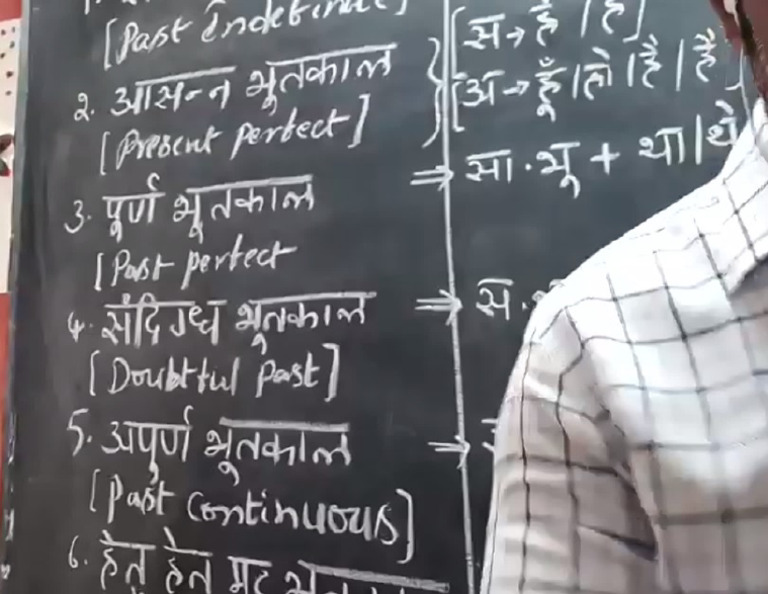 [Past Indefinite]
[स → है / हैं]
2. आसन्न भूतकाल
[अ → हूँ / हो / है / हैं
[Present perfect]
3. पूर्ण भूतकाल ⇒ सा. भू + था / थे
[Past perfect
4. संदिग्ध भूतकाल ⇒ स.
[Doubtful Past]
5. अपूर्ण भूतकाल ⇒
[Past Continuous]
6. हेतु हेतु मद